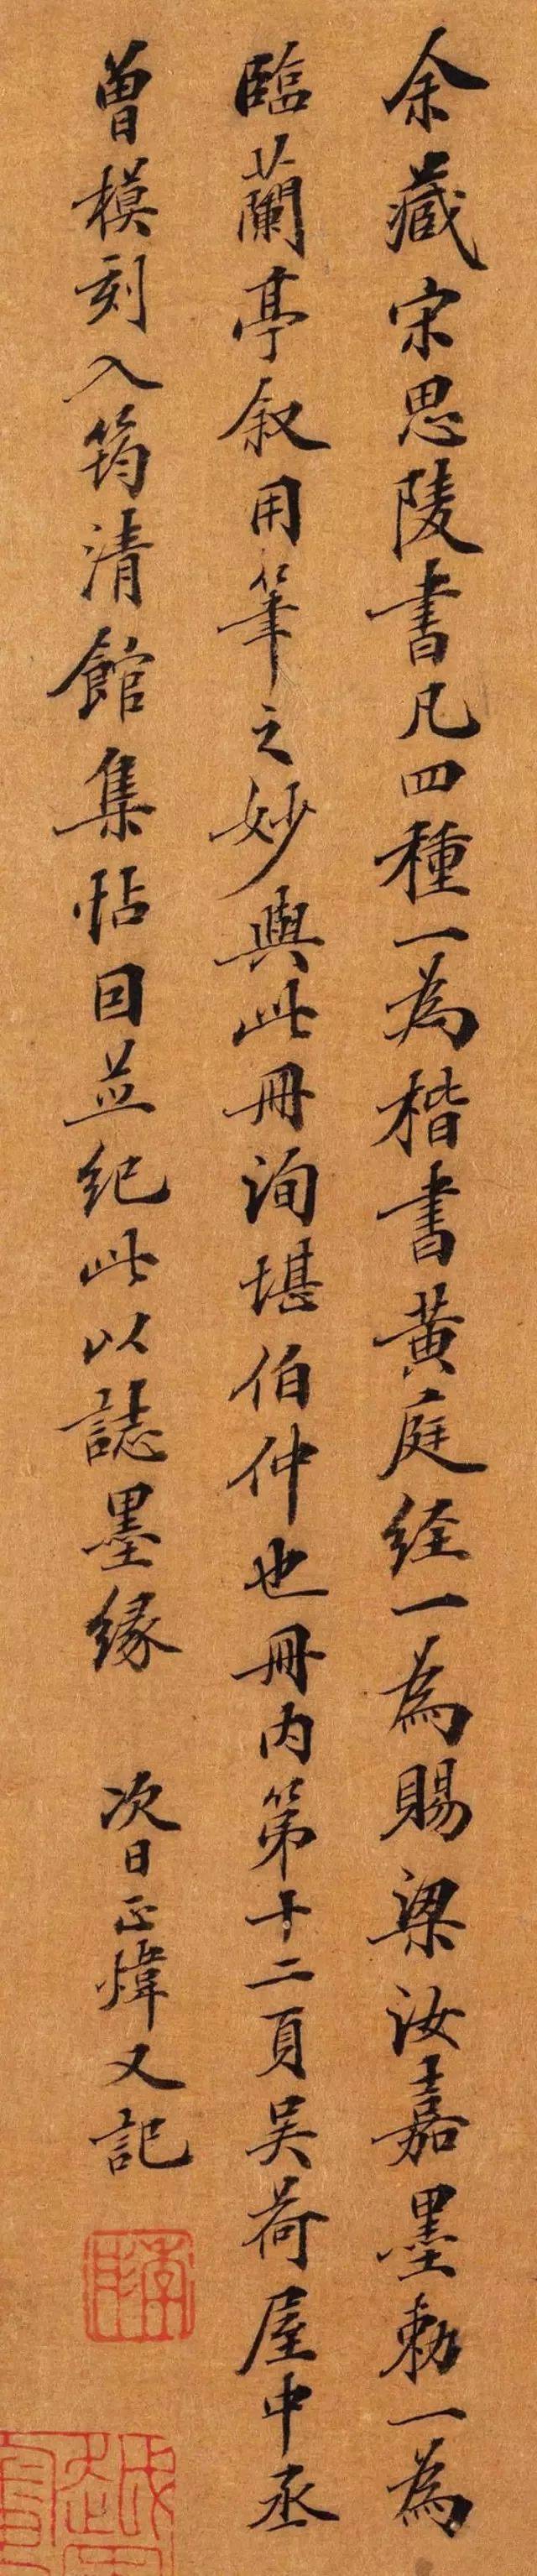 余藏宋思陵書凡四種一為楷書黃庭経一為賜梁汝嘉墨勅一為
臨蘭亭叙用筆之妙與此冊洵堪伯仲也冊内第十二頁吴荷屋中丞
曾模刻入筠清館集帖因並紀此以誌墨緣
次日正煒又記